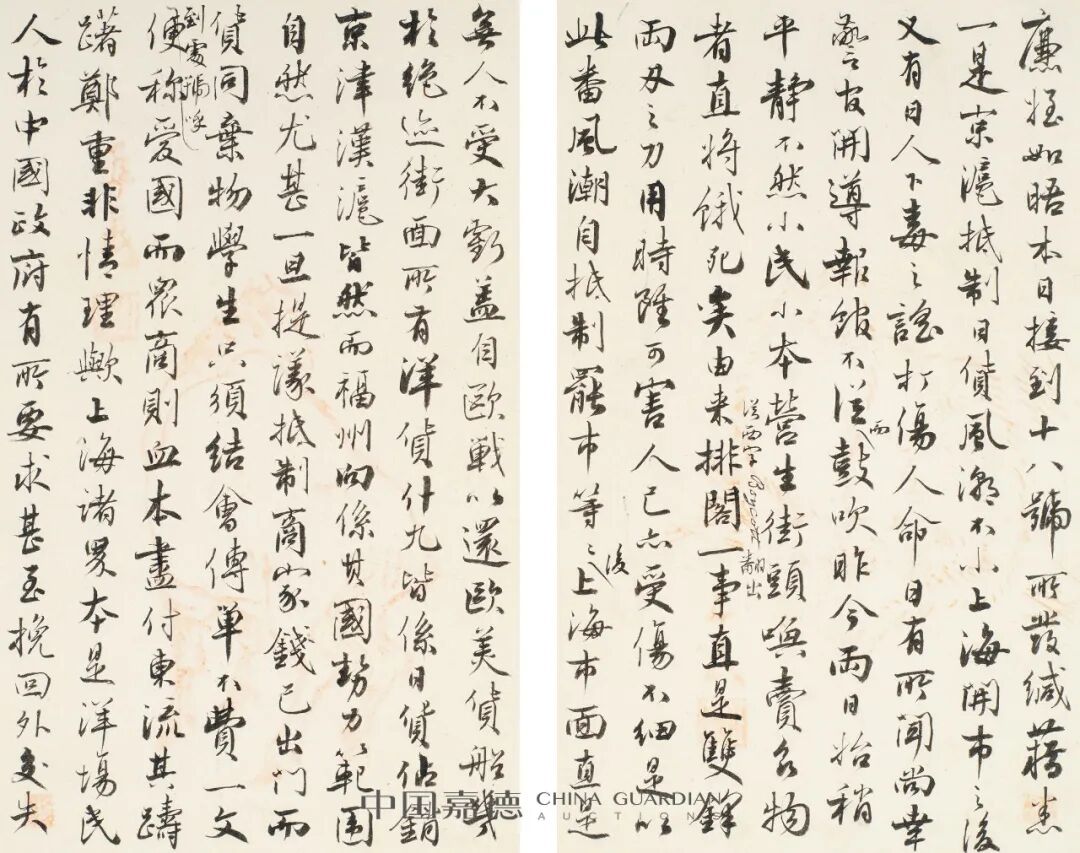 廉姪如晤本日接到十八號所發緘藉悉
一是京滬抵制日貨風潮不小上海開市之後
又有日人下毒之謠打傷人命日有所聞尚幸
警官開導報館不從而鼓吹昨今兩日始稍
平靜不然小民小本營生街頭喚賣食物
者直將餓死矣由来排閣從西字Boycott翻出一事直是雙鋒
兩刃之刀用時雖可害人己亦受傷不細是以
此番風潮自抵制罷市等等後上海市面直是
無人不受大虧蓋自歐戰以還歐美貨船幾
於絕迹街面所有洋貨什九皆係日貨佔銷
京津漢滬皆然而福州向係其國勢力範圍
自然尤甚一旦提議抵制商家錢已出門而
貨同棄物學生只須結會傳單不費一文
到處號呼便稱愛國而眾商則血本盡付東流其躊
躇鄭重非情理歟上海諸界本是洋場民
人於中國政府有所要求甚至挽回外交失
中国嘉德 CHINA GUARDIAN AUCTIONS